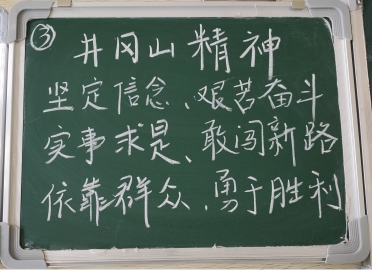 ③
井冈山精神
坚定信念、艰苦奋斗
实事求是、敢闯新路
依靠群众、勇于胜利